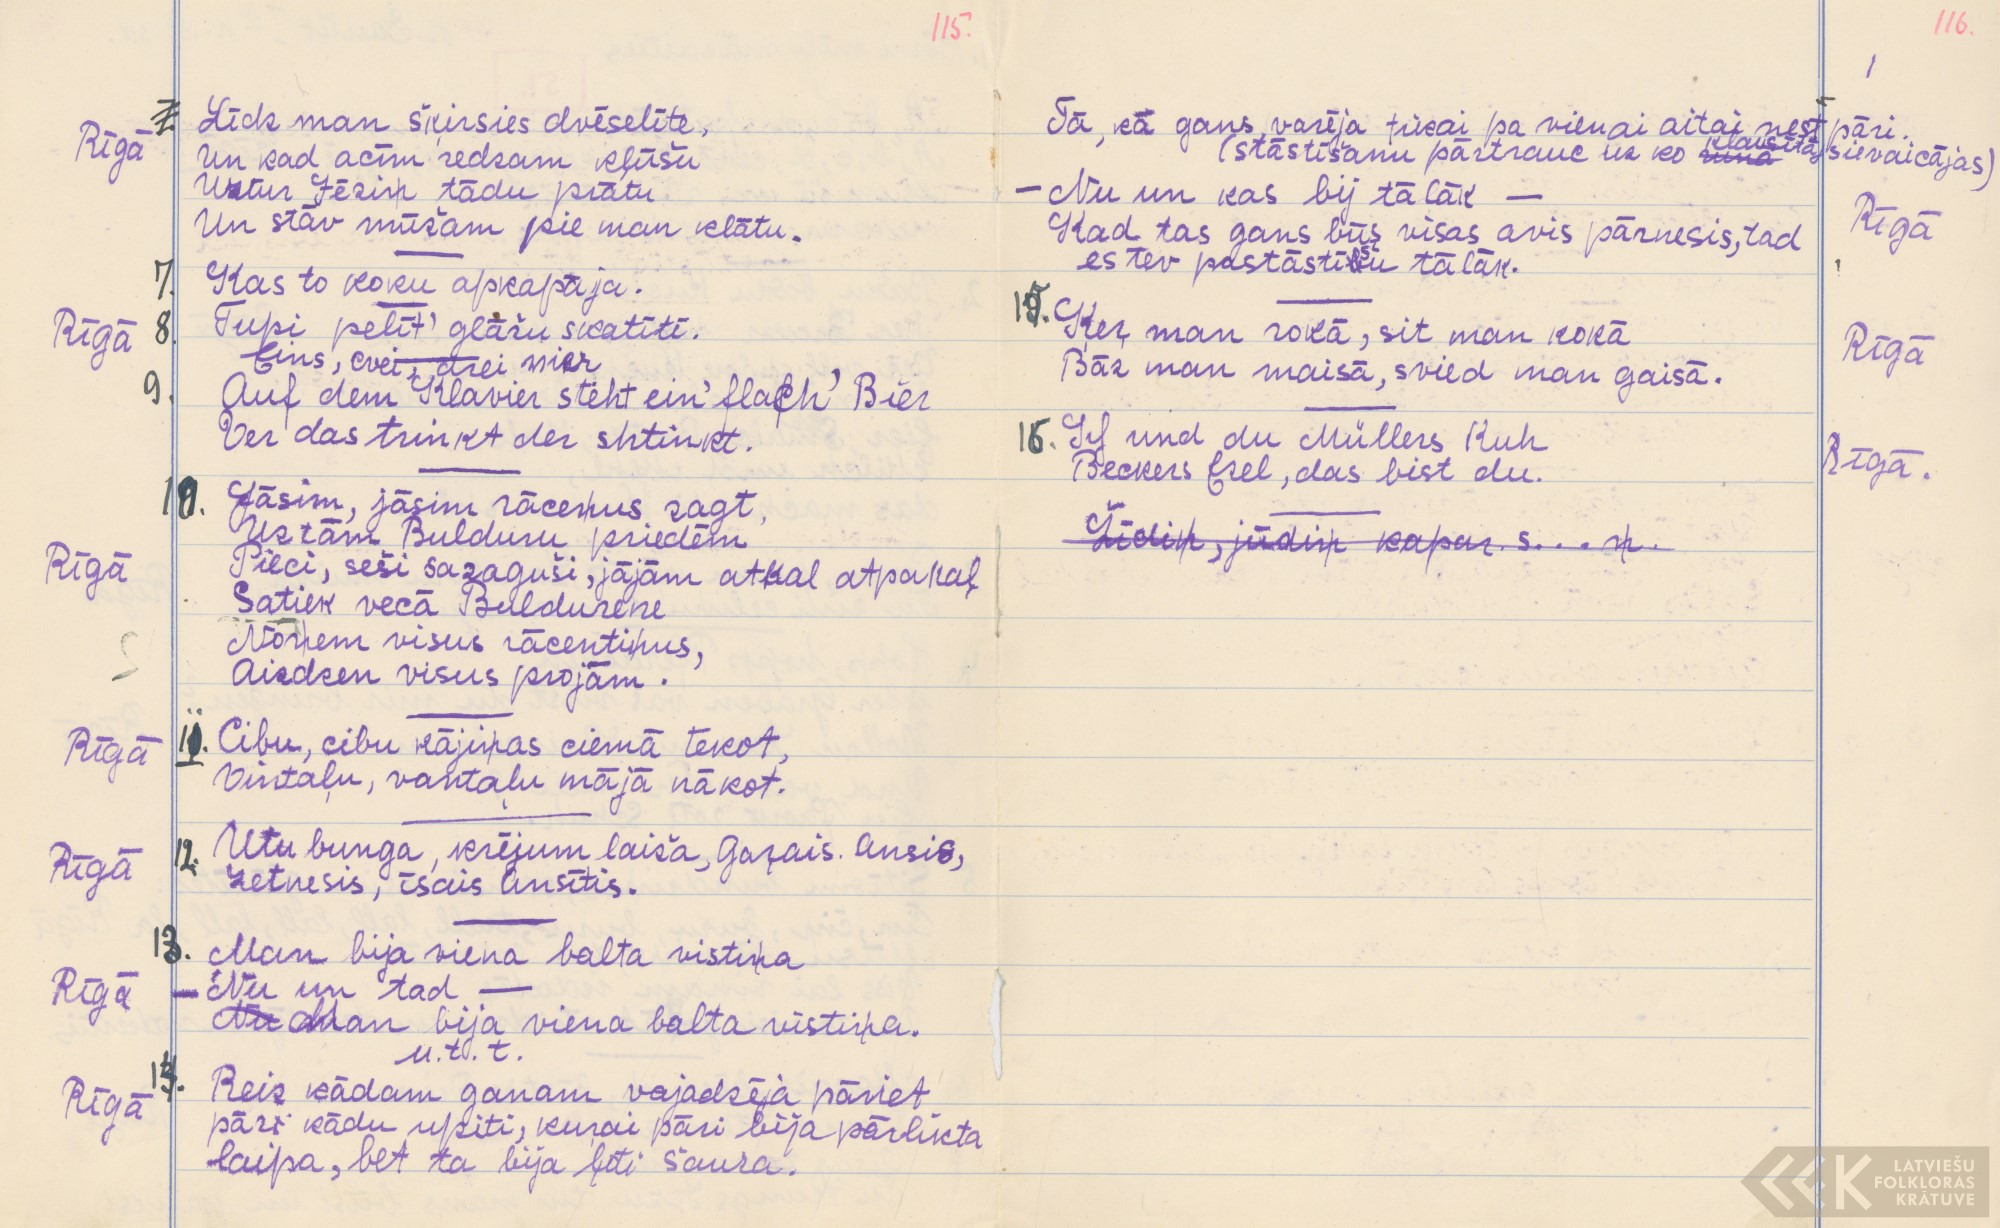 115.
Rīgā
Līdz man šķirsies dvēselīte,
Un kad acīm redzam klūšu
Uztur Jēziņ tādu prātu
Un stāv mūžam pie man klātu.
7. Kas to koku apkapāja.
Rīgā 8. Tupi pelīt' glāžu skatīti.
Eins, cvei, drei vier
9. Auf dem Klavier steht ein' flach' Bier
Ver das trinkt der shtinkt.
10. Jāsim, jāsim rāceņus zagt,
Uz tām Bulduru priedēm
Rīgā
Pieci, seši sazaguši, jājām atkal atpakaļ
Satiek vecā Buldurene
Noņem visus rācentiņus,
Aizdzen visus projām.
Rīgā 11. Cibu, cibu kājiņas ciemā tekot,
Vintaļu, vantaļu mājā nākot.
Rīgā 12. Utu bunga, krējum laiža, Gaŗais. Ansis,
zetnesis, īsais Ansītis.
13. Man bija viena balta vistiņa
Rīgā — Nu un tad —
Nu Man bija viena balta vistiņa.
u.t.t.
Rīgā 14. Reiz kādam ganam vajadzēja pāriet
pāri kādu upīti, kurai pāri bija pārlikta
laipa, bet ta bija ļoti šaura.
116.
Tā, kā gans, varēja tikai pa vienai aitai nest pāri.
(stāstīšanu pārtrauc uz ko klausītājs ievaicājas)
— Nu un kas bij tālāk — Rīgā
Kad tas gans būs visas avis pārnesis, tad
es tev pastāstīšu tālāk.
15. Ķeŗ man rokā, sit man kokā Rīgā
Bāz man maisā, svied man gaisā.
16. Ih und du Müllers Kuh
Beckers Ezel, das bist du. Rīgā.
Žīdiņ, jūdiņ kapar. s....ņ.
LATVIEŠU
FOLKLORAS
KRĀTUVE